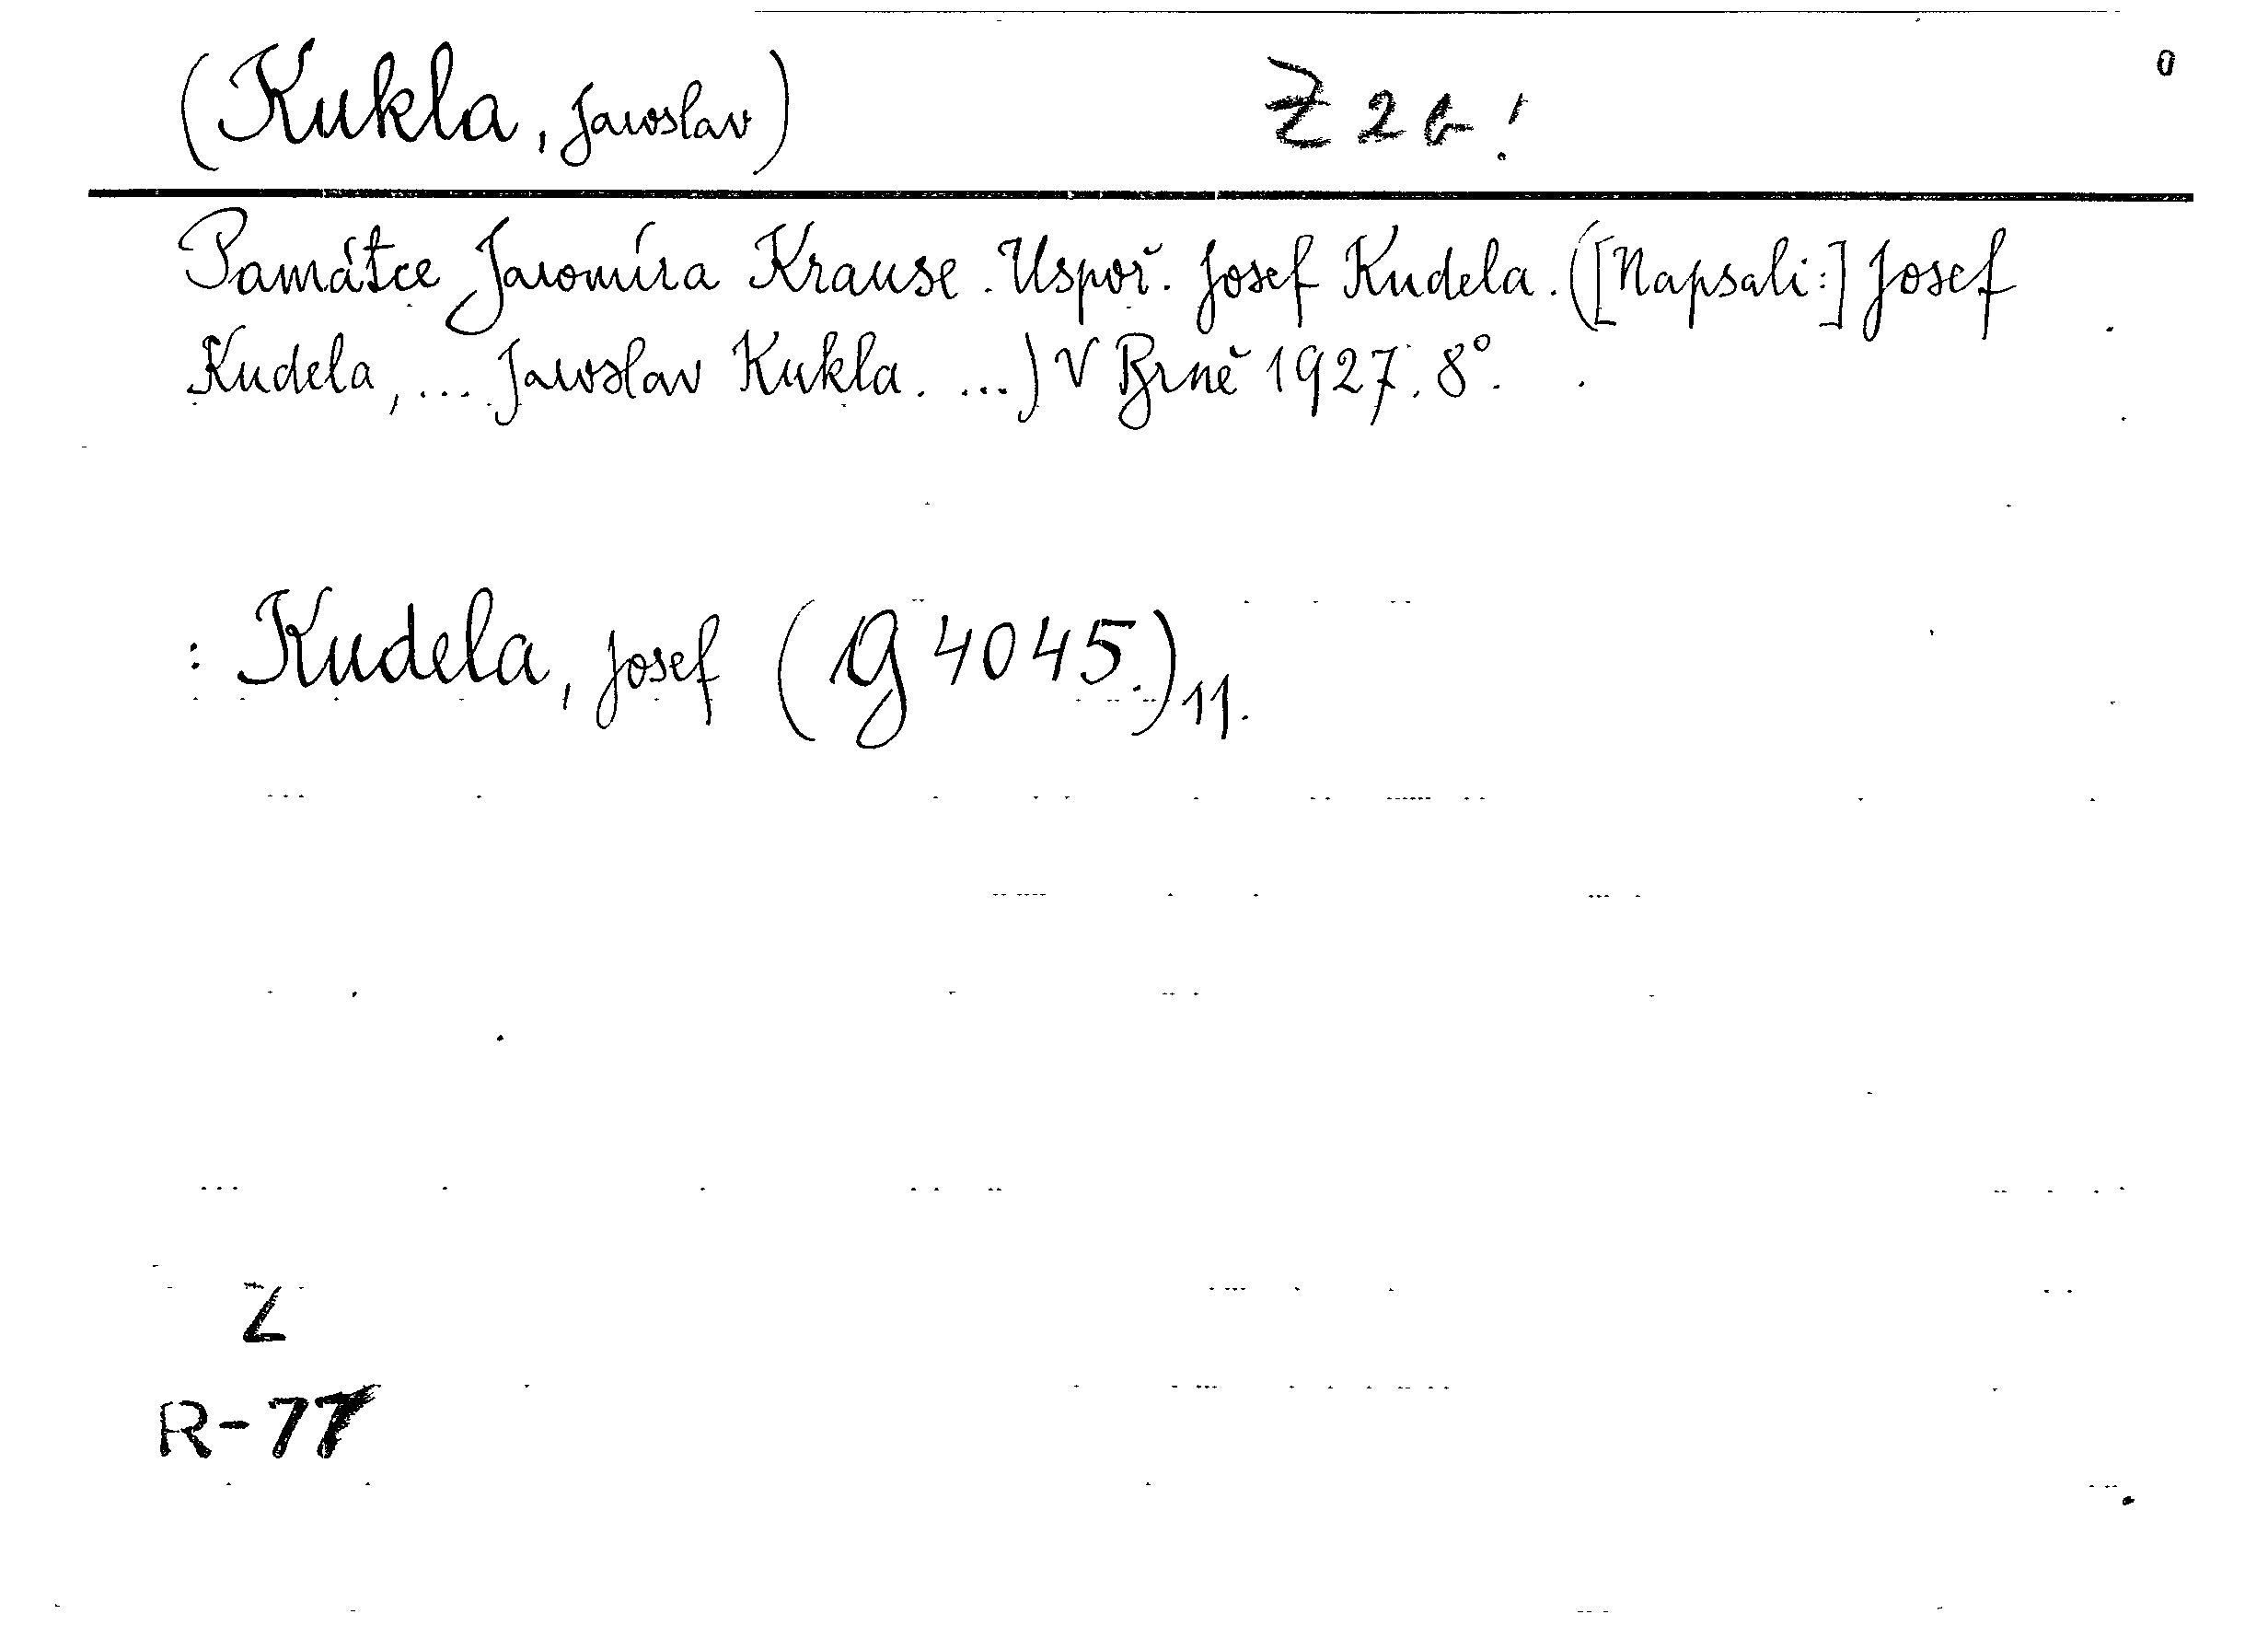 (Kukla, Jaroslav)
0
Památce Jaromíra Krause. Uspoř. Josef Kudela. ([Napsali:] Josef
Kudela, ... Jaroslav Kukla. ...) V Brně 1927. 8°.
: Kudela, Josef (G 4045.) 11.
Z
R-77